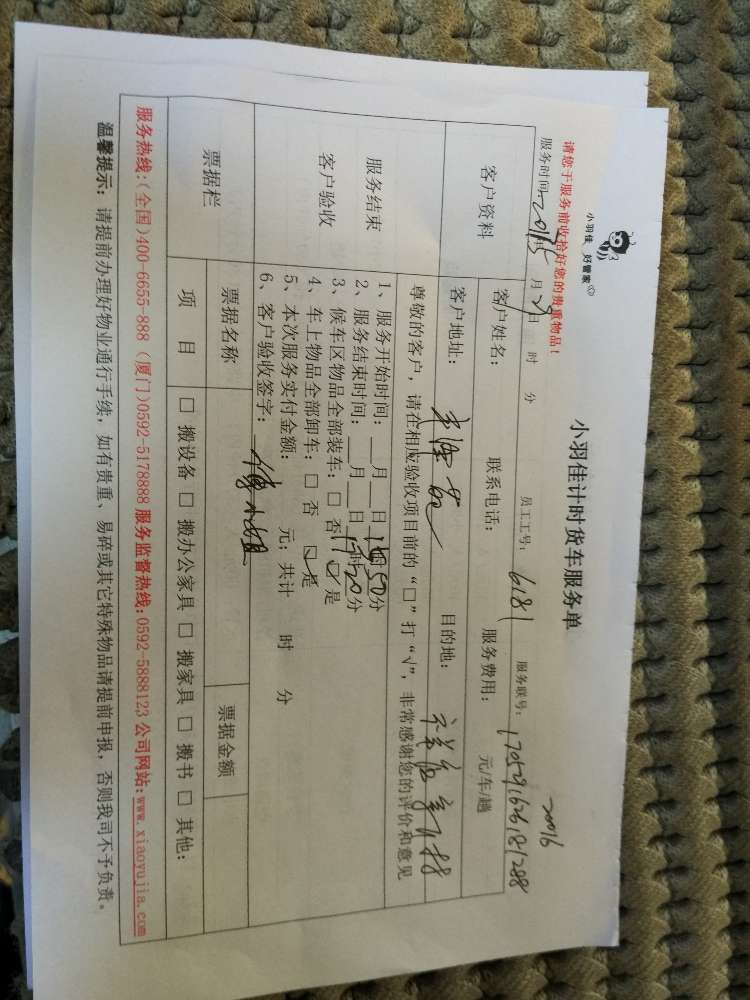 小羽佳 好管家
小羽佳计时货车服务单
请您于服务前收拾好您的贵重物品！
20016
服务时间: 2017 5 月 29 日 时 分 员工工号: 6181 服务联号: 1705291626181288
客户资料 客户姓名: 联系电话: 服务费用: 元/车/趟
客户地址: 目的地:
尊敬的客户，请在相应验收项目前的“□”打“√”，非常感谢您的评价和意见
服务结束
客户验收
1、服务开始时间: 月 日 时 50分
2、服务结束时间: 月 日 17时20分
3、候车区物品全部装车: □ 否 □ 是
4、车上物品全部卸车: □ 否 □ 是
5、本次服务实付金额: 元; 共计 时 分
6、客户验收签字:
票据栏 票据名称 票据金额
项 目 □ 搬设备 □ 搬办公家具 □ 搬家具 □ 搬书 □ 其他:
服务热线:(全国)400-6655-888 (厦门)0592-5178888 服务监督热线:0592-5888123 公司网站:www.xiaoyujia.com
温馨提示: 请提前办理好物业通行手续，如有贵重、易碎或其它特殊物品请提前申报，否则我司不予负责。